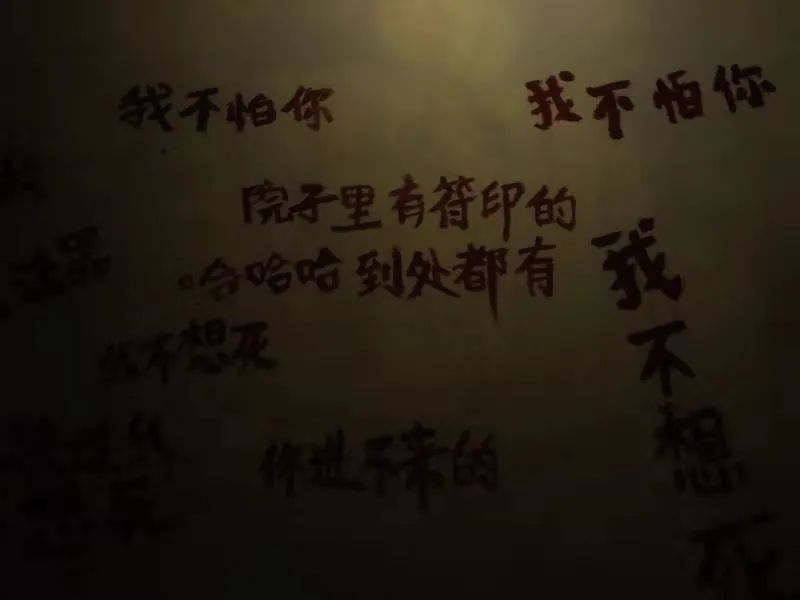 我不怕你
我不怕你
院子里有符印的
哈哈哈 到处都有
我不想死
我不想死
你进不来的